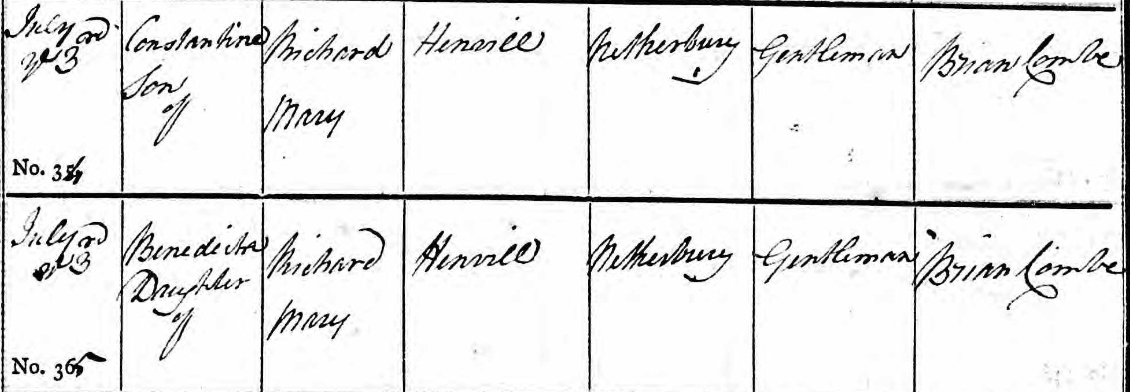 July
ye 3rd
Constantine
Son
of
Richard
Mary
Henvill
Netherbury
Gentleman
Brian Combe
No. 364
July
ye 3rd
Benedicta
Daughter
of
Richard
Mary
Henvill
Netherbury
Gentleman
Brian Combe
No. 365